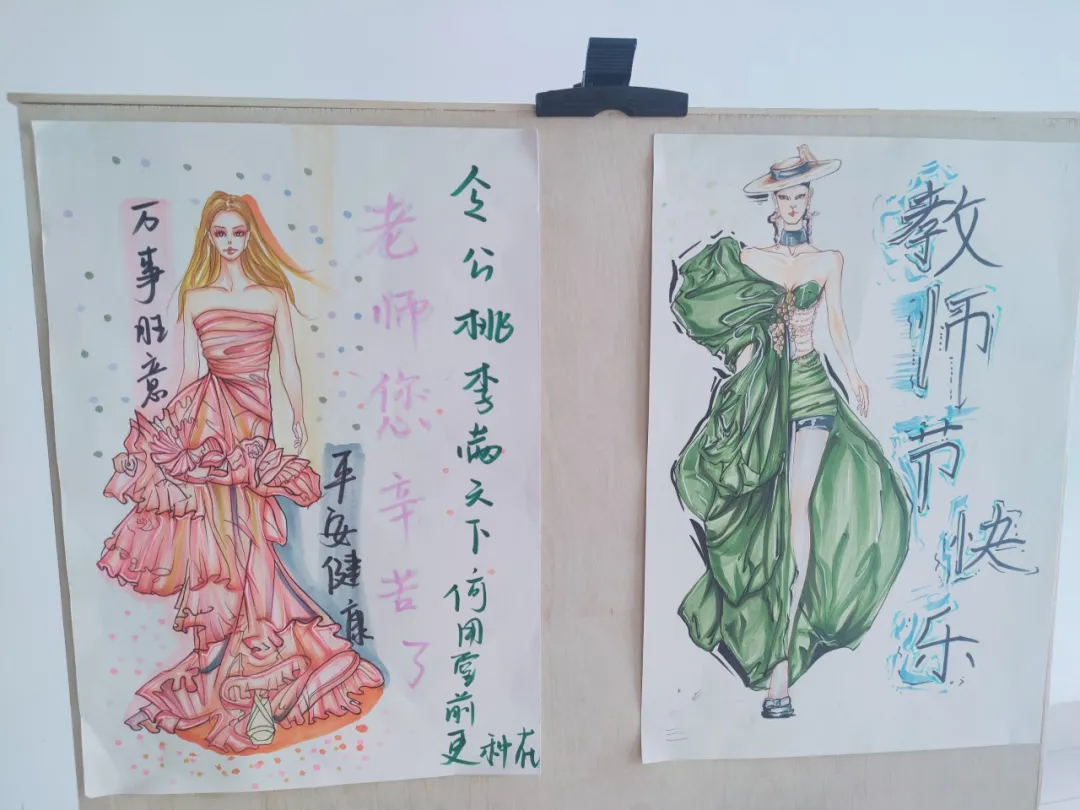 万事胜意
平安健康
老师您辛苦了
令公桃李满天下何用堂前更种花
教师节快乐